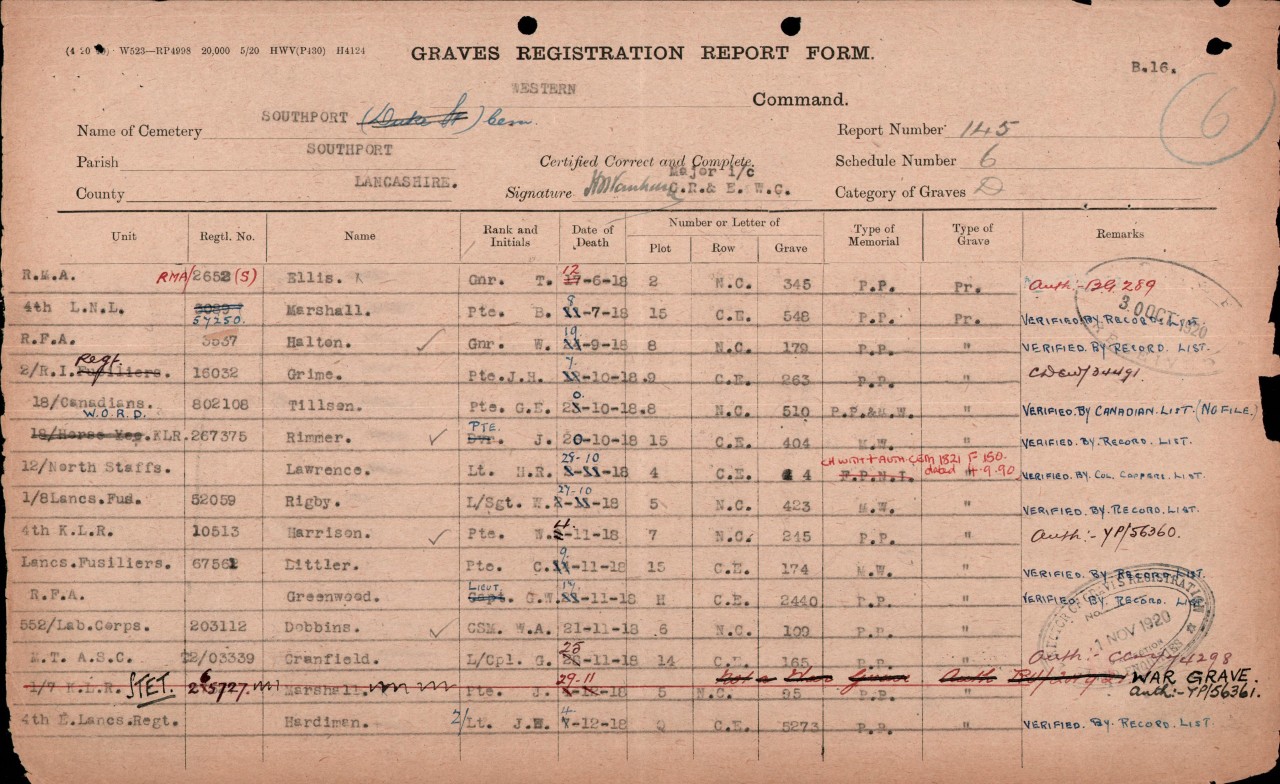 W523—RP4998 20,000 5/20 HWV(P430) H4124
GRAVES REGISTRATION REPORT FORM.
B.16.
6
WESTERN Command.
Name of Cemetery SOUTHPORT (Duke St) Cem.
Report Number 145
Parish SOUTHPORT
Certified Correct and Complete,
Schedule Number 6
County LANCASHIRE.
Signature Major i/c
G.R.& E. W.C.
Category of Graves D
Unit Regtl. No. Name Rank and Initials Date of Death Number or Letter of Plot Row Grave Type of Memorial Type of Grave Remarks
R.M.A. RMA/2652 (S) Ellis. Gnr. T. 12 -6-18 2 N.C. 345 P.P. Pr. Auth:- B.G. 289
4th L.N.L. 57250. Marshall. Pte. B. 8 -7-18 15 C.E. 548 P.P. Pr. VERIFIED. BY RECORD. LIST.
R.F.A. 3537 Halton. ✓ Gnr. W. 19 -9-18 8 N.C. 179 P.P. " VERIFIED. BY RECORD. LIST.
2/R.I. Fusiliers. Regt. 16032 Grime. Pte. J.H. 7 -10-18. 9 C.E. 263 P.P. "
18/Canadians. 802108 Tillsen. Pte. G.E. 20 -10-18. 8 N.C. 510 P.P.&M.W. " VERIFIED. BY CANADIAN. LIST. (NO FILE.)
W.O.R.D.
18/Horse Yeo. KLR. 267375 Rimmer. ✓ Dvr. PTE. J. 20-10-18 15 C.E. 404 M.W. " VERIFIED. BY. RECORD. LIST.
12/North Staffs. Lawrence. Lt. H.R. 29-10 -18 4 C.E. 4 F.P.N.I. " VERIFIED. BY. COL. COPPERS. LIST.
CH WITH + AUTH. CEM 1821 F 150. dated 4.9.90
1/8Lancs.Fus. 52059 Rigby. L/Sgt. W. 27-10 -18 5 N.C. 423 M.W. VERIFIED. BY. RECORD. LIST.
4th K.L.R. 10513 Harrison. ✓ Pte. W. 4. -11-18 7 N.C. 245 P.P. Auth:- YP/56360.
Lancs.Fusiliers. 67561 Littler. Pte. C. 9. -11-18 15 C.E. 174 M.W. VERIFIED. BY. RECORD. LIST.
R.F.A. Greenwood. Capt. LIEUT. G.W. 14. -11-18 H C.E. 2440 P.P. VERIFIED. BY. RECORD. LIST
552/Lab.Corps. 203112 Dobbins. ✓ CSM. W.A. 21-11-18 6 N.C. 109 P.P.
M.T. A.S.C. T2/03339 Cranfield. L/Cpl. G. 25 -11-18 14 C.E. 165 P.P. Auth:-
1/7 K.L.R. STET. 265727. Marshall. Pte. J. 29-11 -18 5 N.C. 95 P.P. Not a War Grave Auth WAR GRAVE. Auth:- YP/56361.
4th E.Lancs.Regt. Hardiman. 2/Lt. J.H. 4 -12-18 Q C.E. 5273 P.P. VERIFIED. BY. RECORD. LIST.
30 OCT 1920
GRAVES REGISTRATION
1 NOV 1920